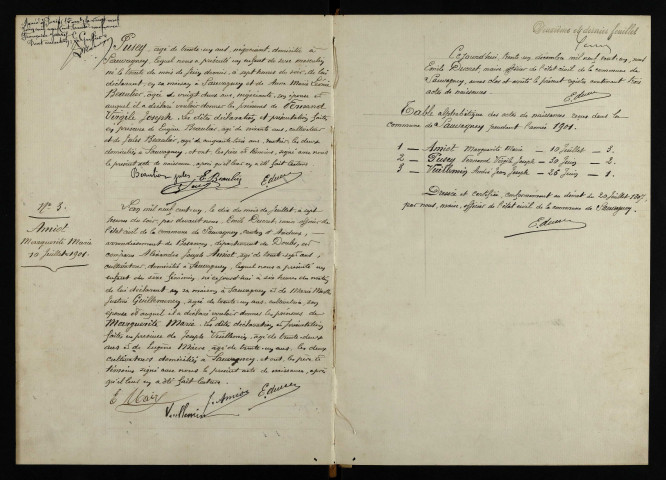 Pusey, âgé de trente un ans, négociant, domicilié à
Sauvagney, lequel nous a présenté un enfant de sexe masculin
né le trente du mois de juin dernier, à sept heures du soir, de lui
déclarant, en sa maison à Sauvagney et de dame Marie
Beaulier, âgée de vingt deux ans, négociante, son épouse et
auquel il a déclaré vouloir donner les prénoms de Fernand
Virgile Joseph. Les dites déclaration et présentation faites
en présence de Eugène, cultivateur
et de Jules, âgé de quarante trois ans, les deux
domiciliés à Sauvagney, et ont, les père et témoins, signé avec nous le
présent acte de naissance, après qu'il leur en a été fait lecture
N° 3.
Amiot
Marguerite Marie
10 Juillet 1901.
L'an mil neuf cent un, le dix du mois de Juillet, à sept
heures du soir, par devant nous, Emile Ducret, maire officier de
l'état civil de la commune de Sauvagney, canton d'Audeux,
arrondissement de Besançon, département du Doubs, est
comparu Alexandre Joseph Amiot, âgé de trente sept ans,
cultivateur, domicilié à Sauvagney, lequel nous a présenté un
enfant du sexe féminin, né aujourd'hui à six heures du matin
de lui déclarant en sa maison à Sauvagney et de Marie
Justine Guillemin, âgée de trente-un ans, cultivatrice, son
épouse et auquel il a déclaré vouloir donner les prénoms de
Marguerite Marie. Les dites déclaration et présentation
faites en présence de Joseph Vuillemin, âgé de trente deux
ans et de Eugène, âgé de trente-un ans, les deux
cultivateurs domiciliés à Sauvagney, et ont, les père et
témoins signé avec nous le présent acte de naissance, après
qu'il leur en a été fait lecture.
Vuillemin J. Amiot E. Ducret
Deuxième et dernier feuillet
Ce jourd'hui, trente un décembre mil neuf cent un, nous
Emile Ducret, maire officier de l'état civil de la commune de
Sauvagney, avons clos et arrêté le présent registre contenant trois
actes de naissances.
E. Ducret
Table alphabétique des actes de naissances reçus dans la
commune de Sauvagney pendant l'année 1901.
1 — Amiot Marguerite Marie — 10 Juillet — 3.
2 — Pusey Fernand Virgile Joseph — 30 Juin — 2.
3 — Vuillemin André Jean Joseph — 26 Juin — 1.
Dressé et certifiée conformément au décret du 20 Juillet 1807,
par nous, maire, officier de l'état civil de la commune de Sauvagney.
E. Ducret